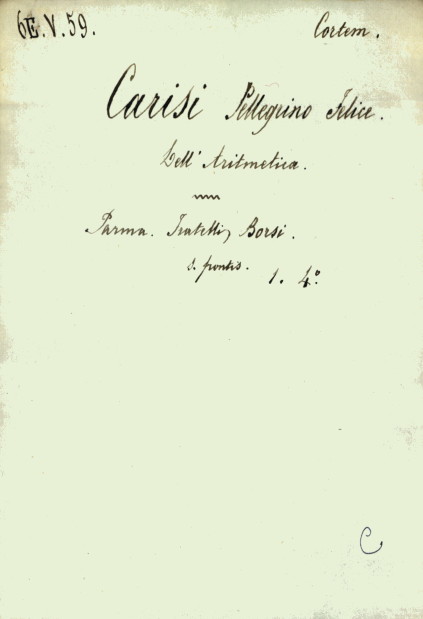 6E.V.59. Cortem.
Carisi Pellegrino Felice.
Dell' Aritmetica.
Parma. Fratelli, Borsi.
s. frontis. 1. 4.°
C